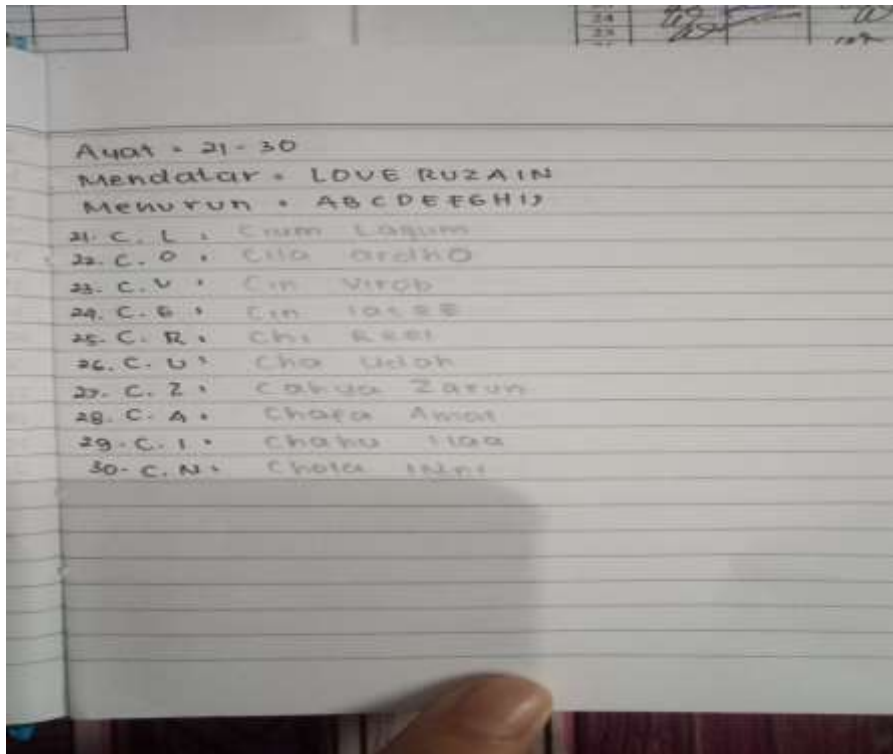 24
25
Ayat = 21 - 30
Mendatar = LOVE RUZAIN
Menurun = ABCDEFGHIJ
21. C. L : Cium Lagum
22. C. O : Cila ardho
23. C. V : Cin Virob
24. C. E : Cin
25. C. R : Chi Reel
26. C. U : Cha Udah
27. C. Z : Cahya Zarun
28. C. A : Chafa Amar
29. C. I : Chahu Ilaa
30. C. N : Chola